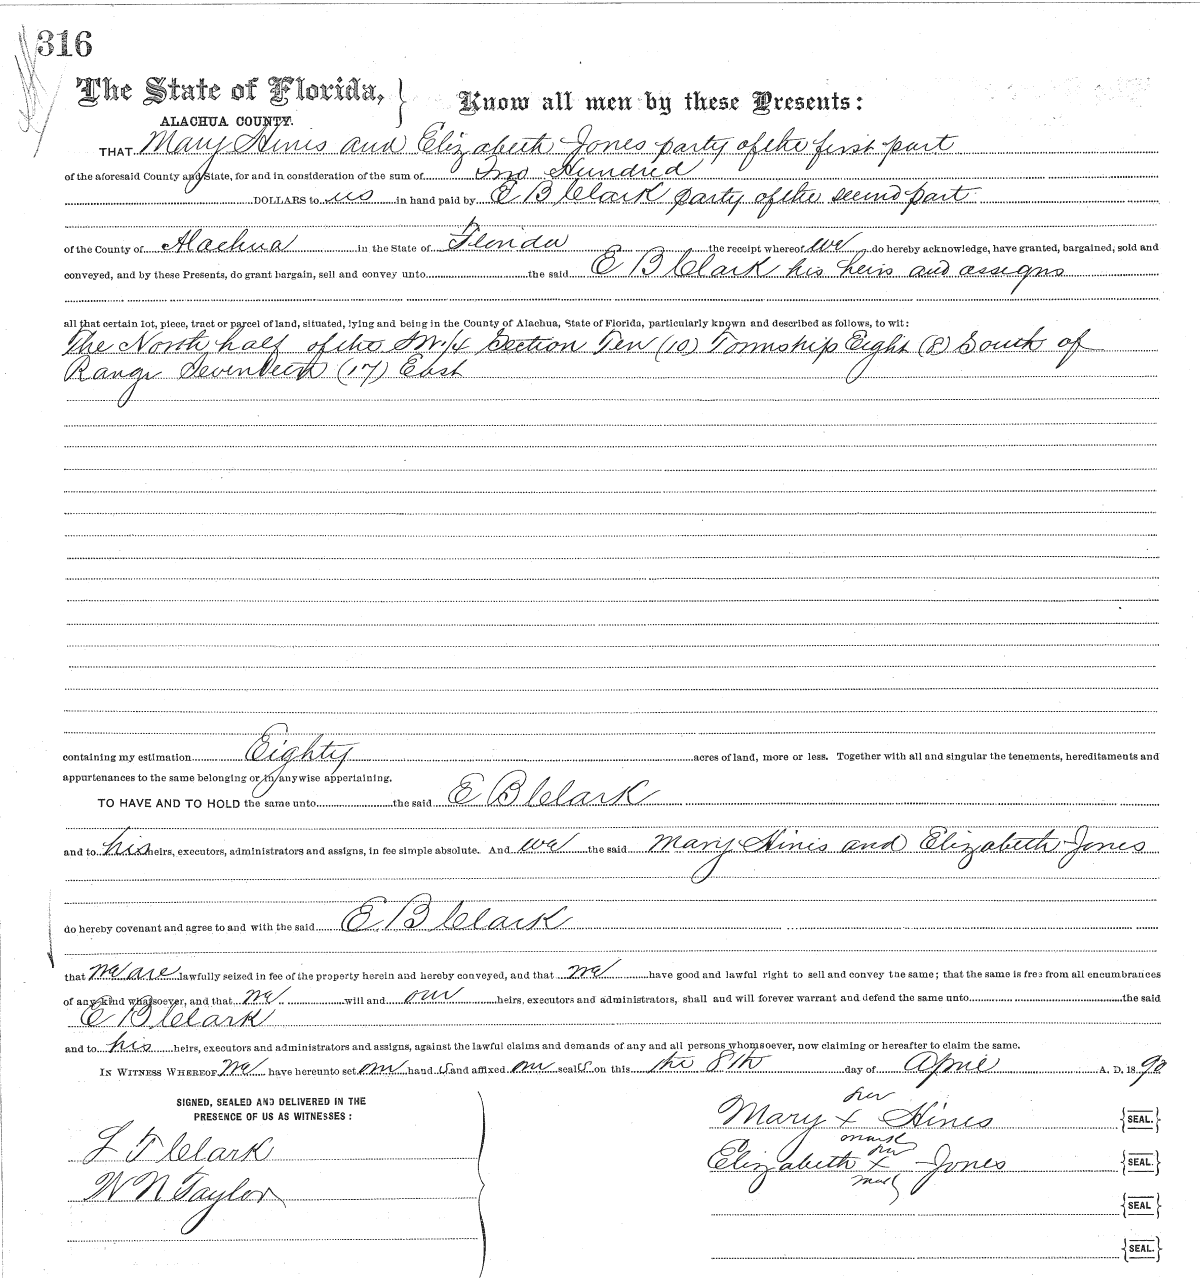 316
The State of Florida,
ALACHUA COUNTY.
Know all men by these Presents:
THAT Mary Hines and Elizabeth Jones party of the first part
of the aforesaid County and State, for and in consideration of the sum of Two Hundred
DOLLARS to us in hand paid by E B Clark party of the second part
of the County of Alachua in the State of Florida the receipt whereof we do hereby acknowledge, have granted, bargained, sold and
conveyed, and by these Presents, do grant bargain, sell and convey unto the said E B Clark his heirs and assigns
all that certain lot, piece, tract or parcel of land, situated, lying and being in the County of Alachua, State of Florida, particularly known and described as follows, to wit:
The North half of the 1/4 Section Ten (10) Township Eight (8) South of
Range Seventeen (17) East
containing my estimation Eighty acres of land, more or less. Together with all and singular the tenements, hereditaments and
appurtenances to the same belonging or in anywise appertaining.
TO HAVE AND TO HOLD the same unto the said E B Clark
and to his heirs, executors, administrators and assigns, in fee simple absolute. And we the said Mary Hines and Elizabeth Jones
do hereby covenant and agree to and with the said E B Clark
that we are lawfully seized in fee of the property herein and hereby conveyed, and that we have good and lawful right to sell and convey the same; that the same is free from all encumbrances
of any kind whatsoever, and that we will and our heirs, executors and administrators, shall and will forever warrant and defend the same unto the said
E B Clark
and to his heirs, executors and administrators and assigns, against the lawful claims and demands of any and all persons whomsoever, now claiming or hereafter to claim the same.
IN WITNESS WHEREOF We have hereunto set our hand s and affixed our seal s on this the 8th day of April A. D. 1890
SIGNED, SEALED AND DELIVERED IN THE
PRESENCE OF US AS WITNESSES:
L T Clark
W N Taylor
her
Mary X Hines SEAL.
mark
her
Elizabeth X Jones SEAL.
mark
SEAL
SEAL.